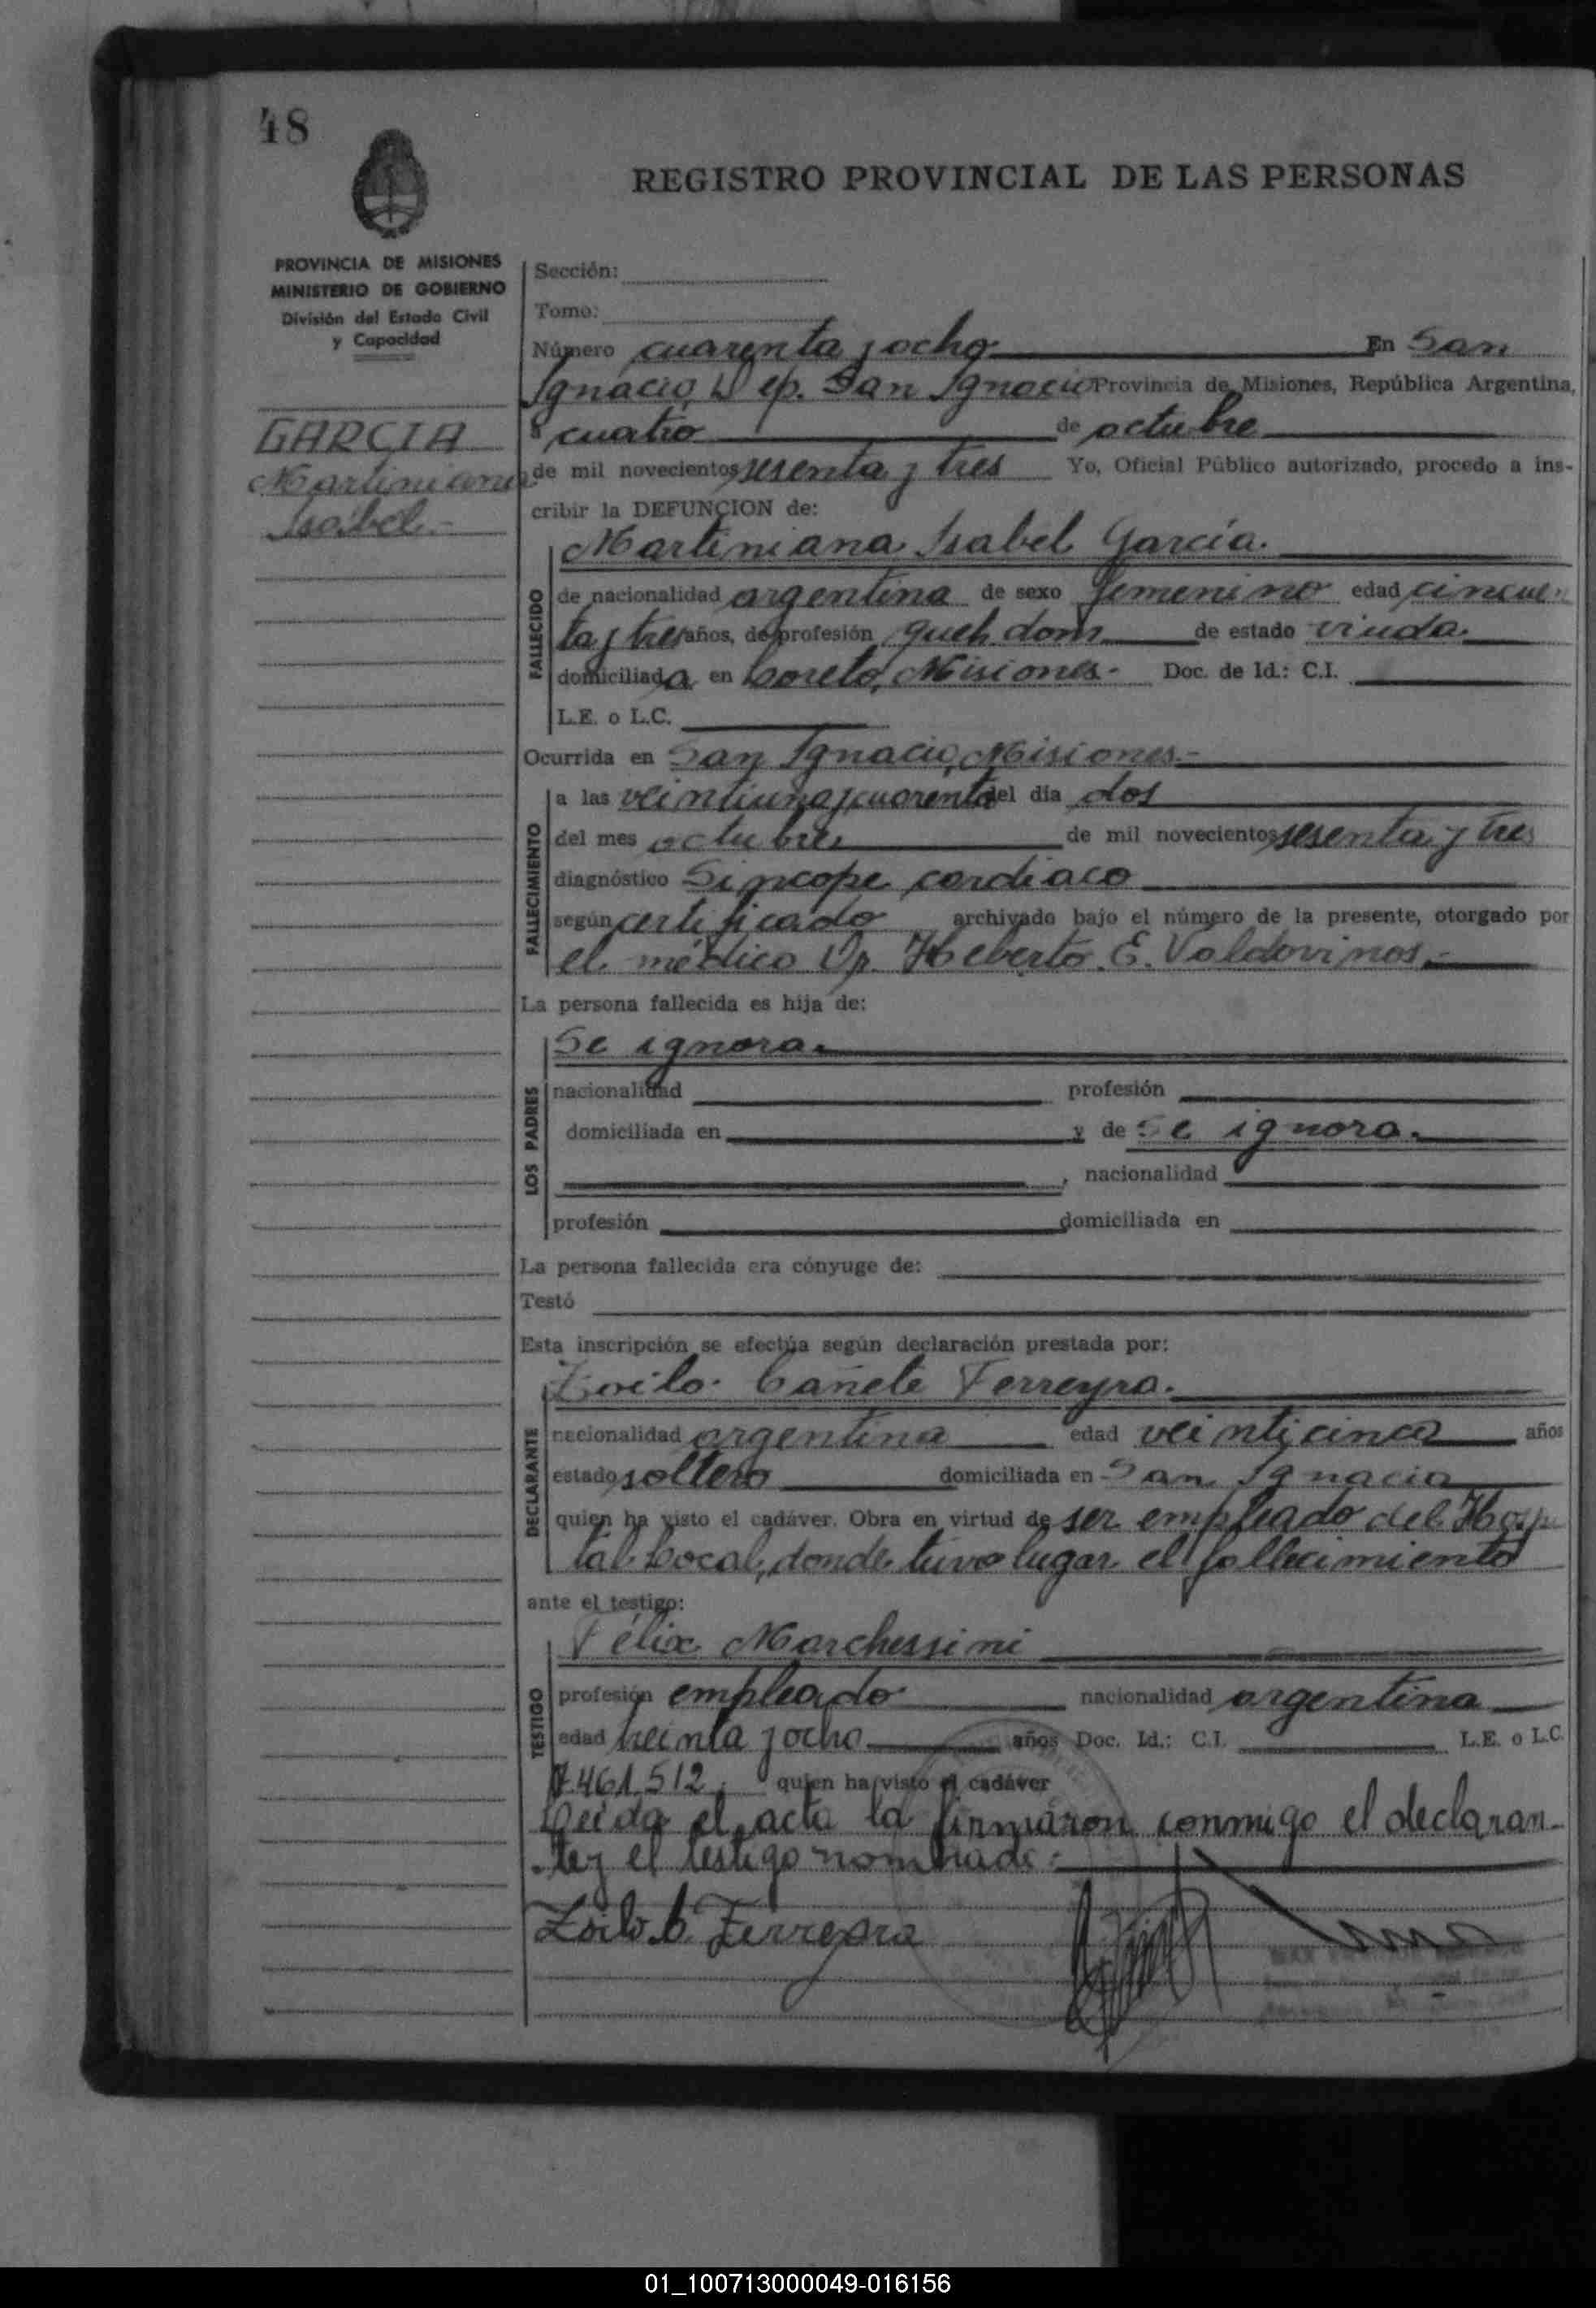 48
REGISTRO PROVINCIAL DE LAS PERSONAS
PROVINCIA DE MISIONES
MINISTERIO DE GOBIERNO
División del Estado Civil
y Capacidad
GARCIA
Martiniana
Isabel.-
Sección:
Tomo:
Número cuarenta y ocho En San
Ignacio, Dep. San Ignacio Provincia de Misiones, República Argentina,
a cuatro de octubre
de mil novecientos sesenta y tres Yo, Oficial Público autorizado, procedo a ins-
cribir la DEFUNCION de:
Martiniana Isabel García.
FALLECIDO
de nacionalidad argentina de sexo femenino edad cincuen
ta y tres años, de profesión queh. dom. de estado viuda.
domiciliada en Loreto, Misiones.- Doc. de Id.: C.I.
L.E. o L.C.
Ocurrida en San Ignacio, Misiones.-
FALLECIMIENTO
a las veintiuna y cuarenta del día dos
del mes octubre de mil novecientos sesenta y tres
diagnóstico Sincope cardiaco
según certificado archivado bajo el número de la presente, otorgado por
el médico Dr. Heberto E. Valdovinos.-
La persona fallecida es hija de:
Se ignora.
LOS PADRES
nacionalidad profesión
domiciliada en y de Se ignora.
, nacionalidad
profesión domiciliada en
La persona fallecida era cónyuge de:
Testó
Esta inscripción se efectúa según declaración prestada por:
Zoilo Cañete Ferreyra.
DECLARANTE
nacionalidad argentina edad veinticinco años
estado soltero domiciliada en San Ignacio
quien ha visto el cadáver. Obra en virtud de ser empleado del Hospi
tal Local, donde tuvo lugar el fallecimiento
ante el testigo:
Félix Marchessini
TESTIGO
profesión empleado nacionalidad argentina
edad treinta y ocho años Doc. Id.: C.I. L.E. o L.C.
7.461.512. quien ha visto el cadáver
Leída el acta la firmaron conmigo el declaran-
te y el testigo nombrado.-
Zoilo C. Ferreyra
01_100713000049-016156